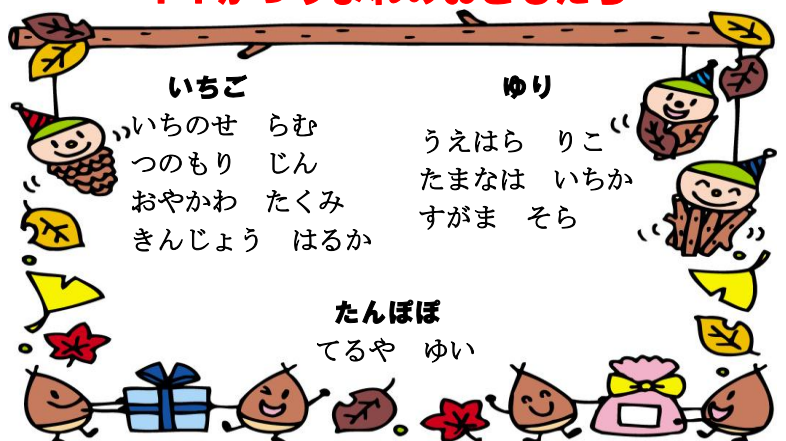 いちご
いちのせ　らむ
つのもり　じん
おやかわ　たくみ
きんじょう　はるか
ゆり
うえはら　りこ
たまなは　いちか
すがま　そら
たんぽぽ
てるや　ゆい